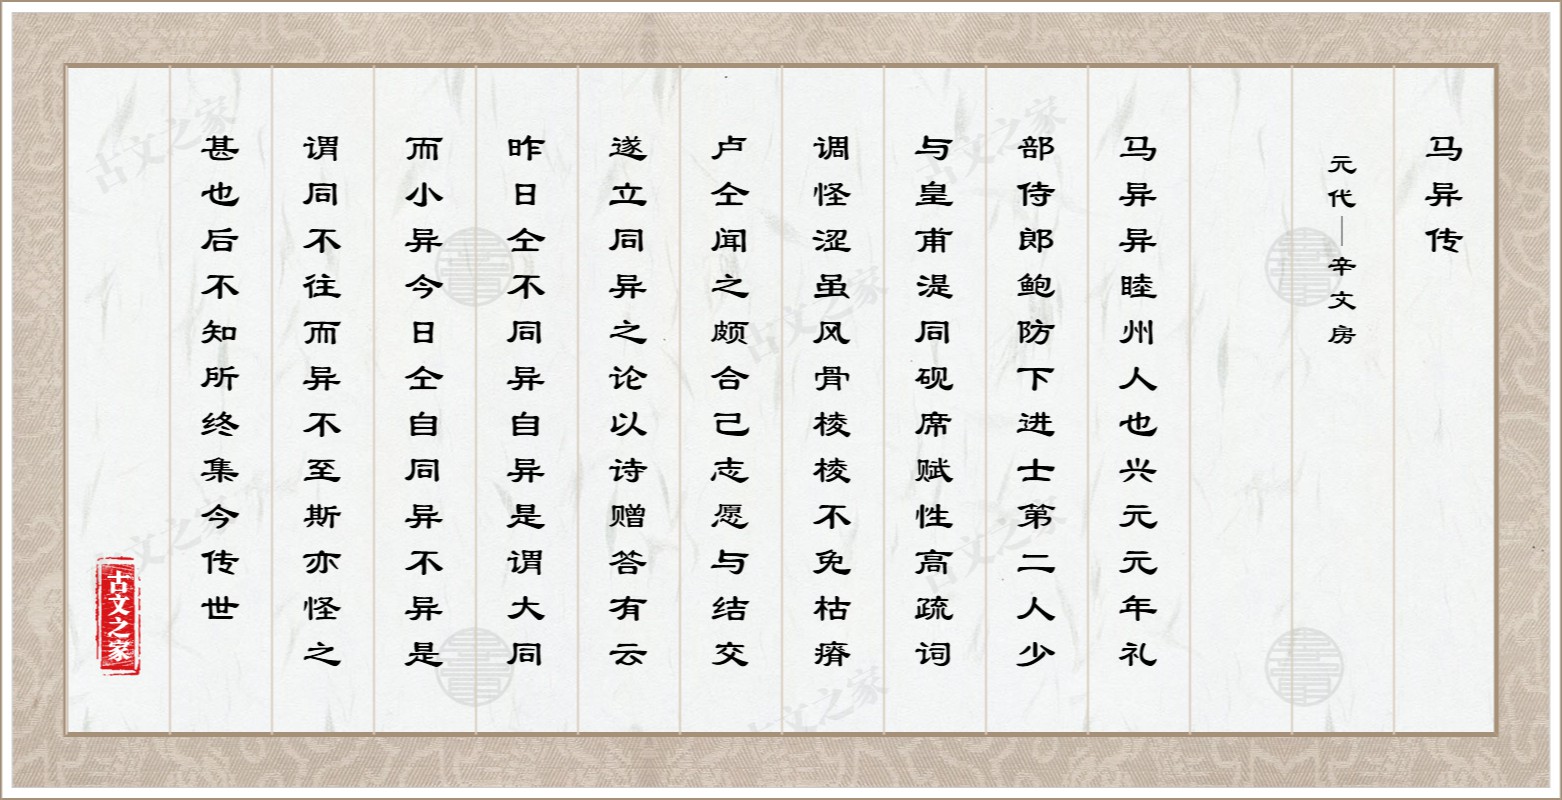 马异传
元代—辛文房
马异异睦州人也兴元元年礼
部侍郎鲍防下进士第二人少
与皇甫湜同砚席赋性高疏词
调怪涩虽风骨棱棱不免枯瘠
卢仝闻之颇合己志愿与结交
遂立同异之论以诗赠答有云
昨日仝不同异自异是谓大同
而小异今日仝自同异不异是
谓同不往而异不至斯亦怪之
甚也后不知所终集今传世
古文之家
古文之家
古文之家
古文之家
古文之家
古文之家
古文之家